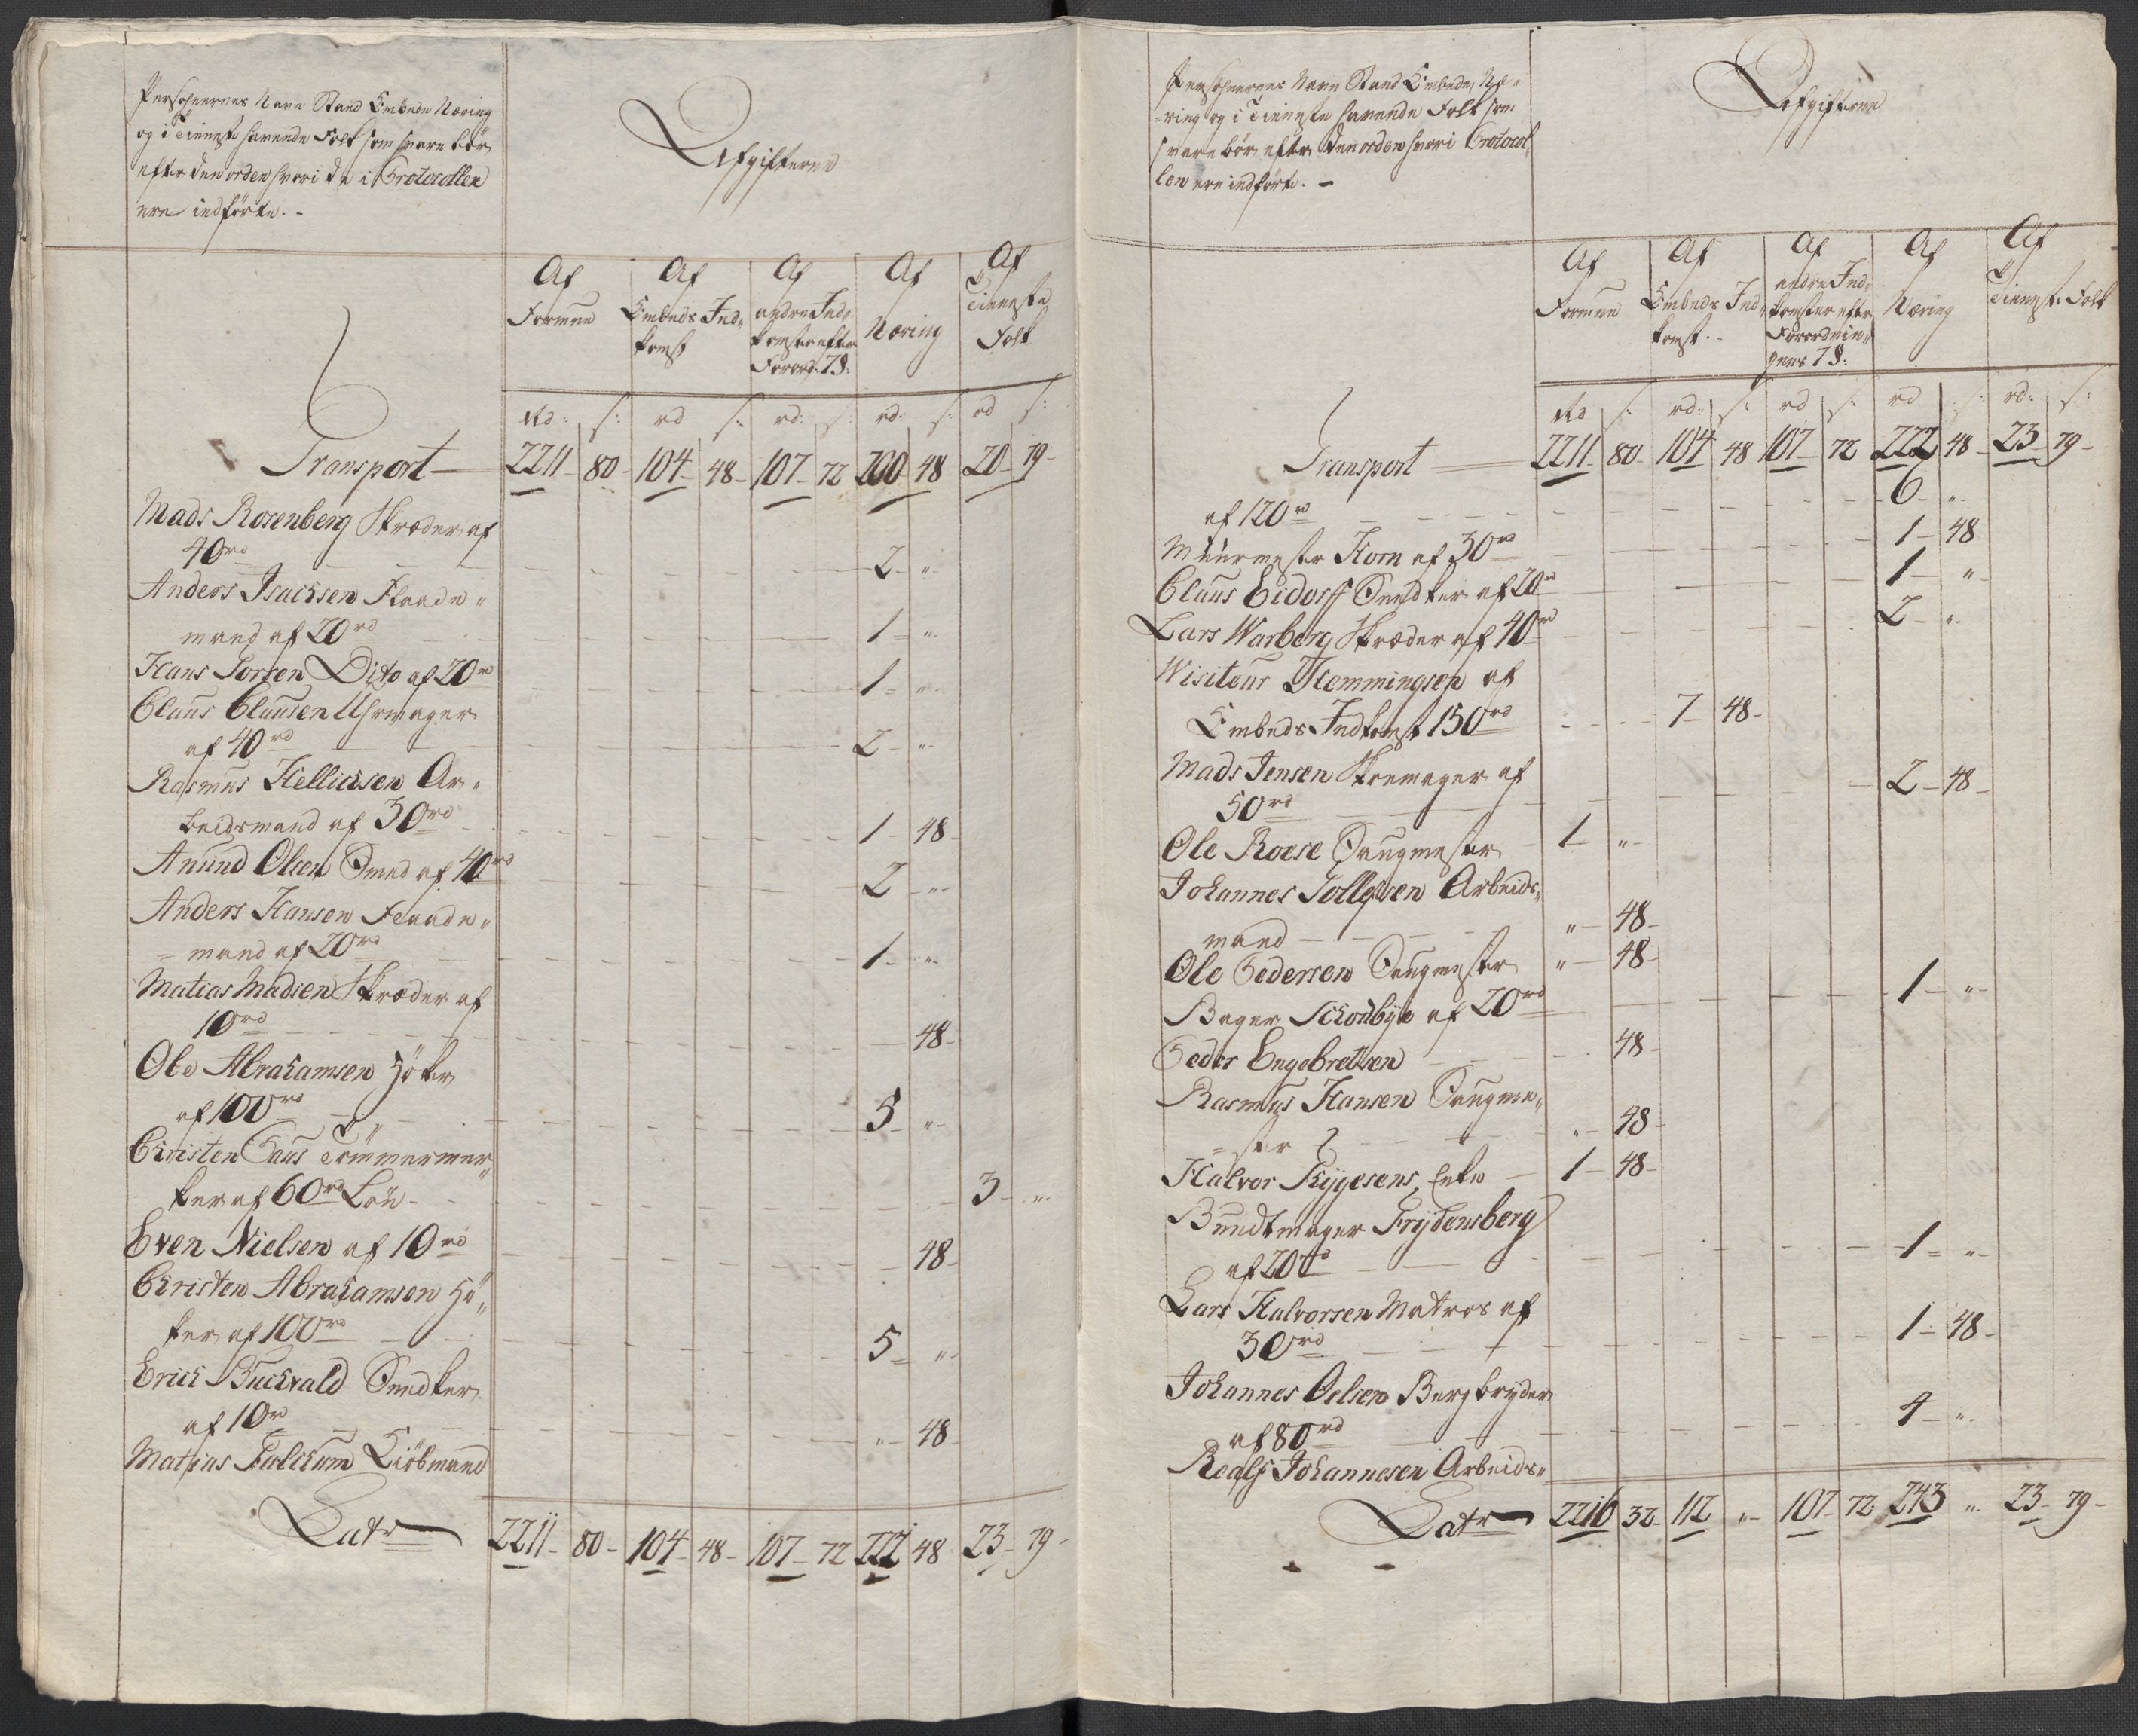 Personernes Navn Stand Embede Næring
og i Tieneste havende Folk som svare bør
efter den orden hvori de i Protocollen
ere indførte. -
Afgifterne
Af Formue
Af Embeds Indkomst
Af andre Indkomster efter Forord: 7 §:
Af Næring
Af Tieneste Folk
Rd: s: rd s: rd: s: rd: s: rd s:
Transport — 2211 - 80 - 104 - 48 - 107 - 72 200 48 20 - 79 -
Mads Rosenberg Skræder af
40 rd 2 - "
Anders Isachsen Flaade "
mand af 20 rd 1 - "
Hans Torsen Dito af 20 rd 1 - "
Claus Clausen Uhrmager
af 40 rd 2 - "
Rasmus Hellichsen Ar "
beidsmand af 30 rd 1 - 48 -
Anund Olsen Smed af 40 rd 2 - "
Anders Hansen Flaade "
= mand af 20 rd 1 - "
Matias Madsen Skræder af
10 rd 48 -
Ole Abrahamsen Høker
af 100 rd 5 - "
Christen Paus Tømmermær "
ker af 60 rd Løn - 3 - "
Even Nielsen af 10 rd 48 -
Christen Abrahamsen Hø "
ker af 100 rd 5 - "
Erich Buchvald Snedker
af 10 rd " - 48 -
Mathias Kiøbmand
Latr 2211 - 80 - 104 - 48 - 107 - 72 222 48 23 - 79 -
Personernes Navn Stand Embede Næ "
= ring og i Tieneste havende Folk som
svare bør efter den orden hvori Protocol "
len ere indførte. -
Afgifterne
Af Formue
Af Embeds Indkomst. -
Af andre Indkomster efter Forordningens 7 §:
Af Næring
Af Tienest. Folk
Rd s: rd: s: rd s: rd s: rd: s:
Transport — 2211 - 80 - 104 48 107 - 72 222 48 - 23 - 79 -
af 120 rd 6 - "
Muurmester Horn af 30 rd 1 - 48
Claus Eidorff Snedker af 20 rd 1 - "
Lars Warberg Skræder af 40 rd 2 - "
Visiteur Flemmingsen af
Embeds Indkomst 150 rd 7 - 48 -
Mads Jensen Skoemager af
50 rd 2 - 48 -
Ole Roese Saugmester - 1 - "
Johannes Tollefsen Arbeids "
mand - " - 48 -
Ole Pedersen Saugmester " - 48 -
Bager Schoubye af 20 rd 1 - "
Peder Engebretsen 48 -
Rasmus Hansen Saugme "
= ster " - 48 -
Halvor Rygesens, Enke - 1 - 48 -
Bundtmager Frydensberg
af 20 rd 1 - "
Lars Halvorsen Matros af
30 rd 1 - 48 -
Johannes Oelsen Bergbryder
af 80 rd 4 - "
Roalf Johannesen Arbeids "
Latr 2216 32 - 112 " - 107 - 72 243 " - 23 - 79 -